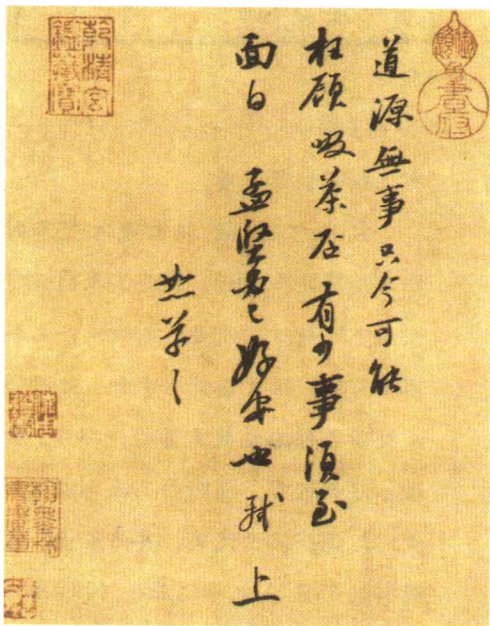 道源無事只今可能
枉顧啜茶否有少事須至
面白孟堅必已好安也軾上
恕草々
乾清宮鑑藏寶